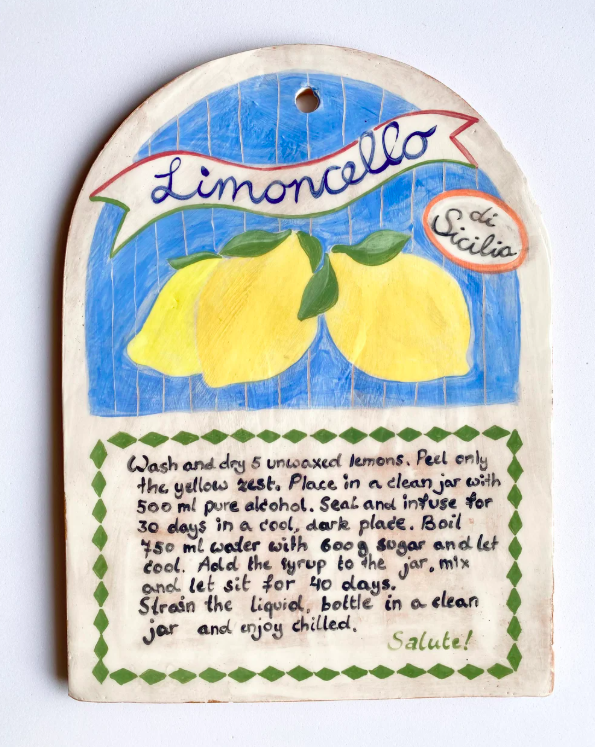 Limoncello
di
Sicilia
Wash and dry 5 unwaxed lemons. Peel only
the yellow zest. Place in a clean jar with
500 ml pure alcohol. Seal and infuse for
30 days in a cool, dark place. Boil
750 ml water with 600 g sugar and let
cool. Add the syrup to the jar, mix
and let sit for 40 days.
Strain the liquid, bottle in a clean
jar and enjoy chilled.
Salute!